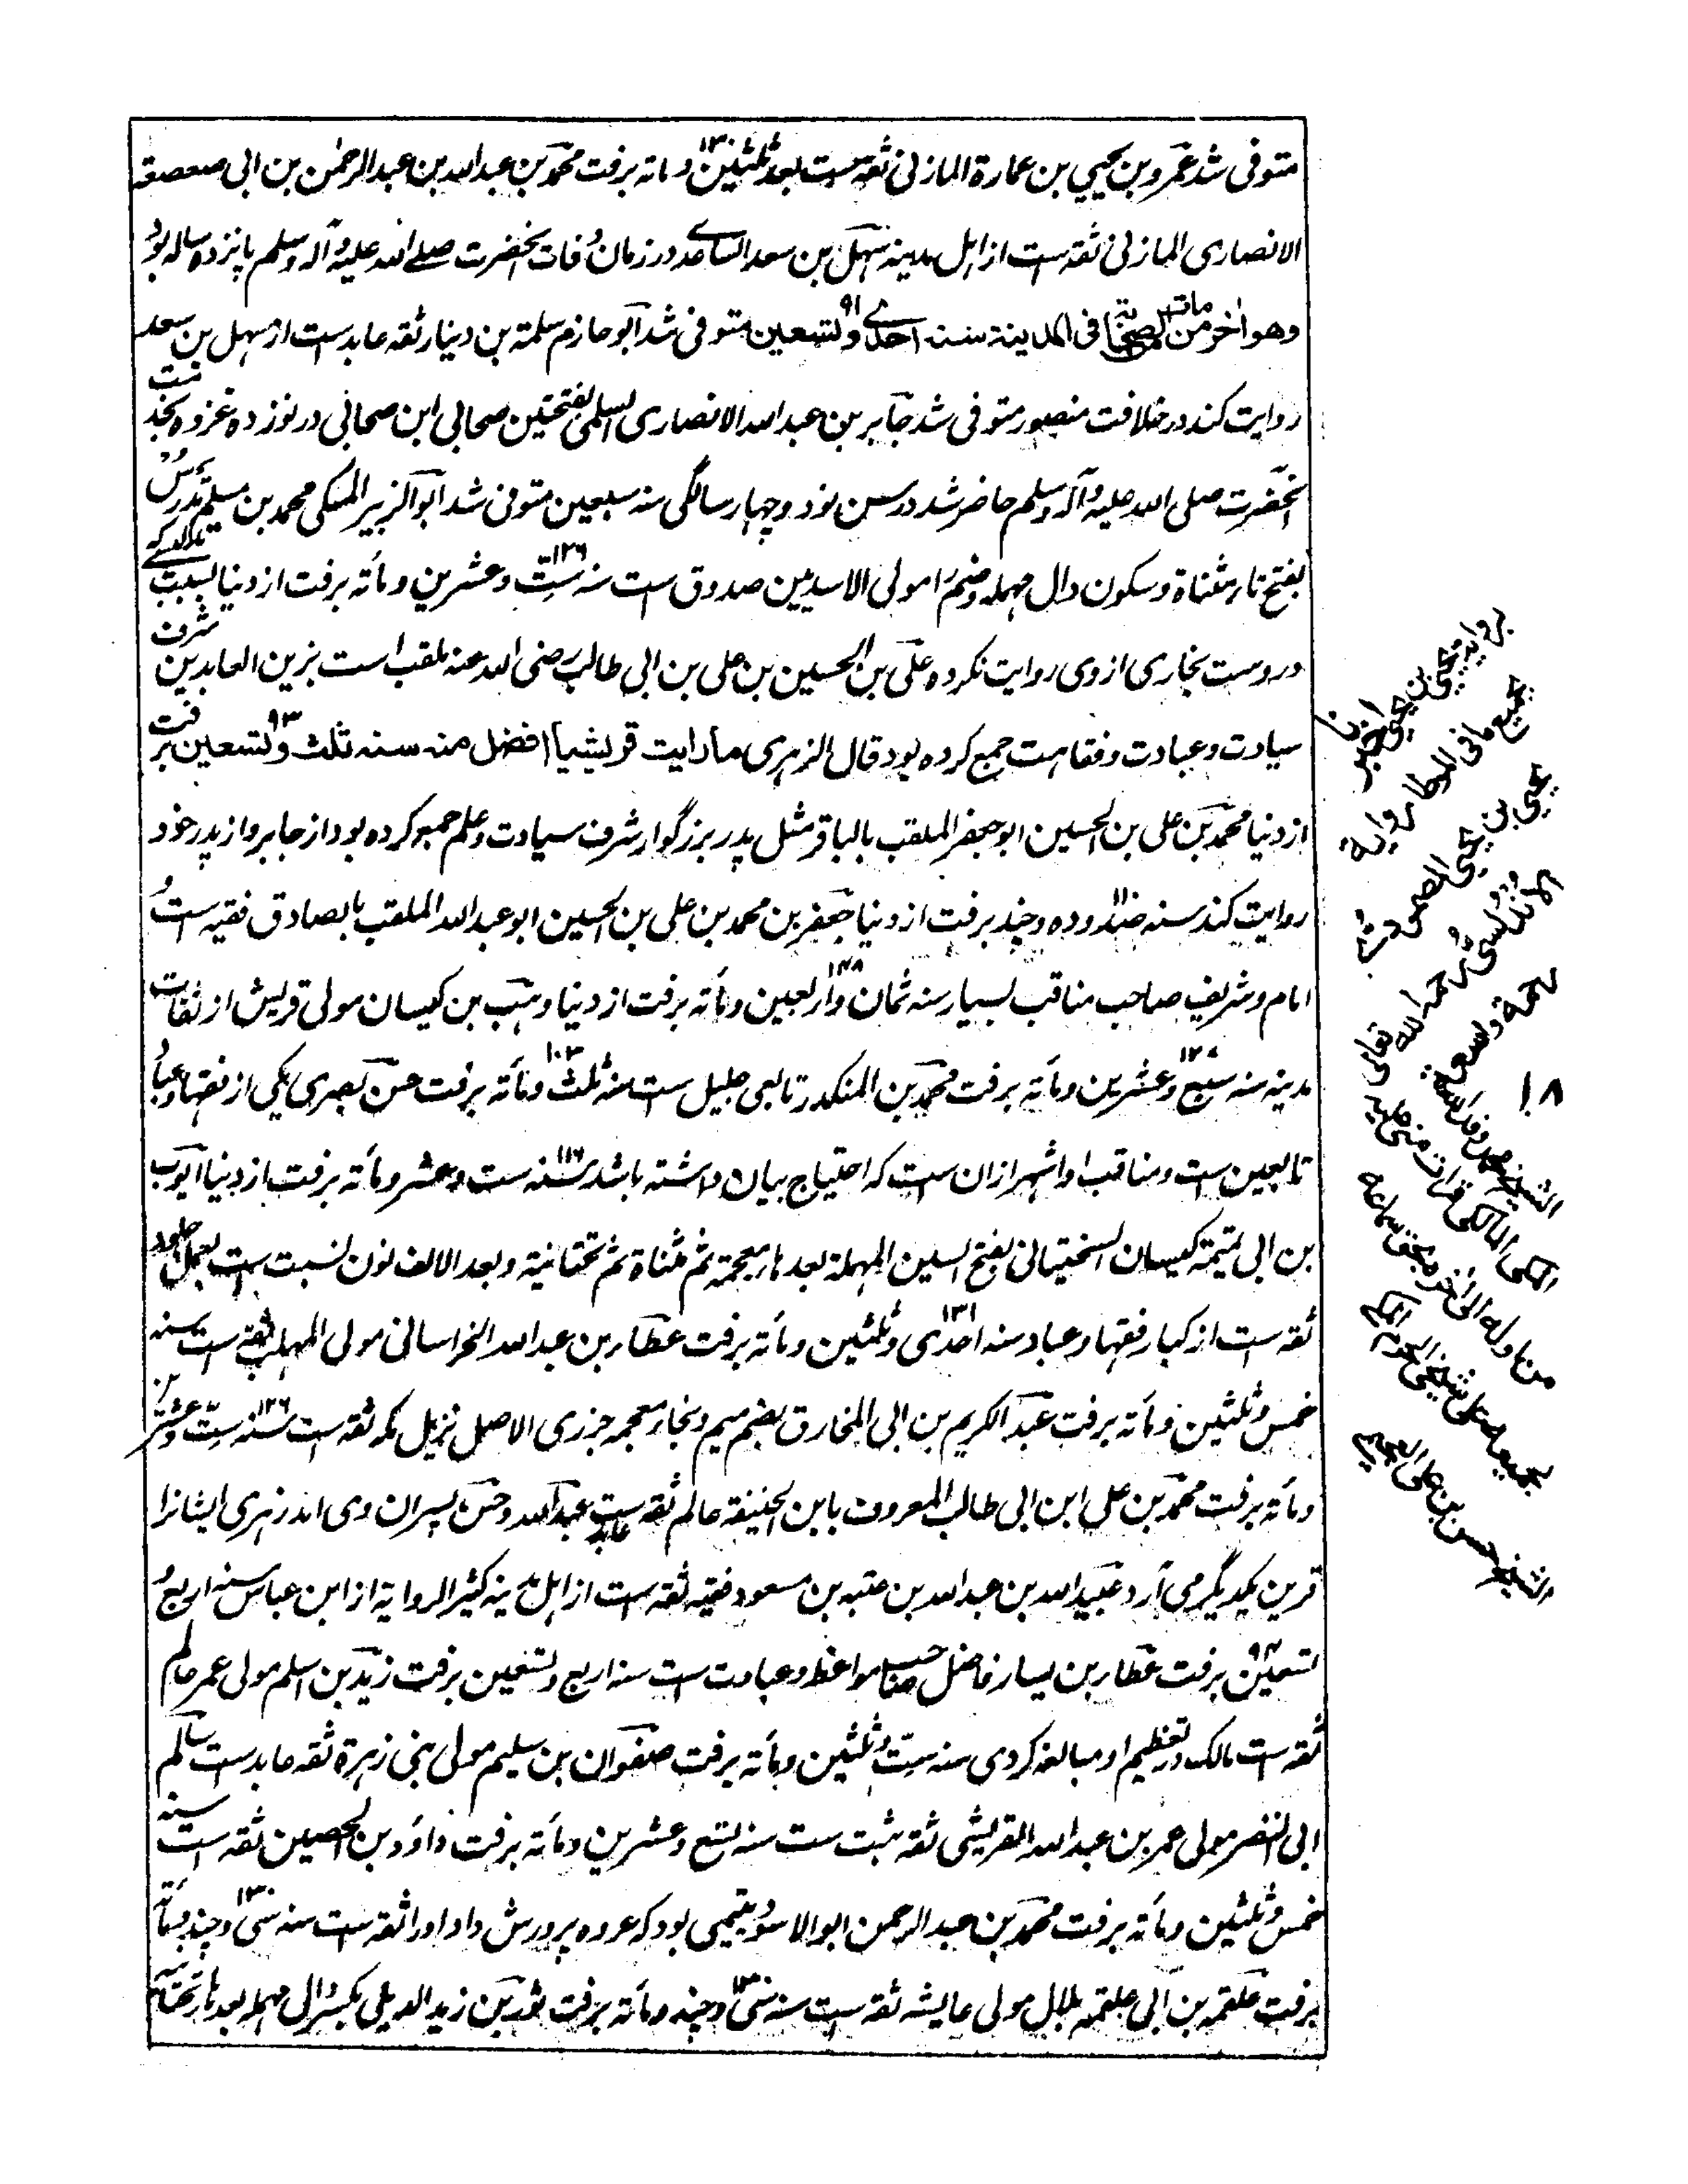 متوفی شد عمرو بن یحیی بن عمارة المازنی ثقه ست بعد ثلثین ۱۳۰ و مأته برفت محمد بن عبدالله بن عبدالرحمٰن بن ابی صعصعه
الانصاری المازنی ثقه ست از اهل مدینه سهل بن سعد الساعدے در زمان وفات آنحضرت صلے الله علیه و آله وسلم پانزده ساله بود و
وهو اٰخر من مات من الصحابة فی المدینة سنه احدے ۹۱ و تسعین متوفی شد ابو حازم سلمة بن دینار ثقه عابدست از سهل بن سعد
روایت کند در خلافت منصور متوفی شد جابر بن عبدالله الانصاری السلمی بفتحتین صحابی ابن صحابی در نوزده غزوه بخدمت
آنحضرت صلی الله علیه و آله وسلم حاضر شد در سن نود و چهار سالگی سنه سبعین متوفی شد ابو الزبیر المکی محمد بن مسلم تدرس
بفتح تاء مثناة و سکون دال مهمله و ضم را مولی الاسدیین صدوق ست سنه ست ۱۲۶ و عشرین و مأته برفت از دنیا بسبب تدلیسے که
در وست بخاری از وی روایت نکرده علی بن الحسین بن علی بن ابی طالب رضی الله عنه ملقب است بزین العابدین شرف
سیادت و عبادت و فقاهت جمع کرده بود قال الزهری ما رایت قریشیا افضل منه سنه ثلث ۹۳ و تسعین برفت
از دنیا محمد بن علی بن الحسین ابو جعفر الملقب بالباقر مثل پدر بزرگوار شرف سیادت و علم جمع کرده بود از جابر و از پدر خود
روایت کند سنه صد و ده و چند برفت از دنیا جعفر بن محمد بن علی بن الحسین ابو عبدالله الملقب بالصادق فقیه ست و
امام و شریف صاحب مناقب بسیار سنه ثمان ۱۴۸ و اربعین و مأته برفت از دنیا وهب بن کیسان مولی قریش از ثقات
مدینه سنه سبع و عشرین و مأته برفت محمد بن المنکدر تابعی جلیل ست سنه ثلث ۱۰۳ و مأته برفت حسن بصری یکی از فقها و عباد
تابعین ست و مناقب او اشهر ازان ست که احتیاج بیان داشته باشد سنه ست ۱۱۶ و عشر و مأته برفت از دنیا ایوب
بن ابی تمیمة کیسان السختیانی بفتح السین المهملة بعدها معجمة ثم مثناة ثم تحتانیة و بعد الالف نون نسبت ست بعمل جلود
ثقه ست از کبار فقها و عباد سنه احدی ۱۳۱ و ثلثین و مأته برفت عطاء بن عبدالله الخراسانی مولی المهلب ثقه ست سنه
خمس و ثلثین و مأته برفت عبدالکریم بن ابی المخارق بضم میم و بخاء معجمه جزری الاصل نزیل مکه ثقه ست سنه ست ۱۲۶ و عشرین
و مأته برفت محمد بن علی ابن ابی طالب المعروف بابن الحنفیة عالم ثقه ست عابد عبدالله و حسن پسران وی اند زهری ایشانرا
قرین یکدیگر می آرد عبید الله بن عبدالله بن عتبه بن مسعود فقیه ثقه ست از اهل مدینه کثیر الروایة از ابن عباس سنه اربع و
تسعین ۹۴ برفت عطاء بن یسار فاضل صاحب مواعظ و عبادت ست سنه اربع و تسعین برفت زید بن اسلم مولی عمر عالم
ثقه ست مالک در تعظیم او مبالغه کردی سنه ست و ثلثین و مأته برفت صفوان بن سلیم مولی بنی زهرة ثقه عابد ست سالم
ابی النضر مولی عمر بن عبدالله القریشی ثقه ثبت ست سنه تسع و عشرین و مأته برفت داود بن الحصین ثقه ست سنه
خمس و ثلثین و مأته برفت محمد بن عبدالرحمن ابو الاسود یتیمی بود که عروه پرورش داد او را ثقه ست سنه سی ۱۳۰ و چند و مأته
برفت علقمه بن ابی علقمه بلال مولی عایشه ثقه ست سنه سی ۱۳۰ و چند و مأته برفت ثور بن زید الدیلی بکسر دال مهمله بعدها تحتانیه
بروایة یحیی بن یحیی اخبرنا
بجمیع ما فی الموطا روایة
یحیی بن یحیی المصمودی
الاندلسی رحمه الله تعالی
رحمة واسعة
۱۸
الشیخ محمد وفد الله
المکی المالکی قراءة منی علیه
من اوله الی اٰخره بحق سماعه
بجمیعه علی شیخی الحرم المکی
الشیخ حسن بن علی العجیمی